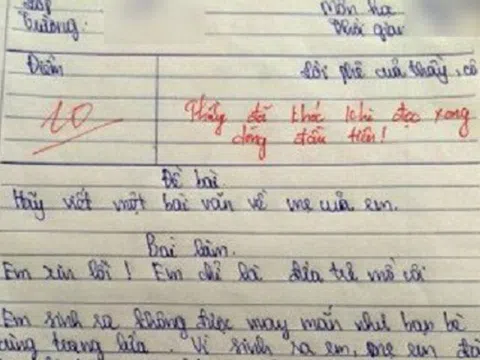 Lớp
Trường:
Môn học
Thời gian
Điểm
Lời phê của thầy, cô
10
Thầy đã khóc khi đọc xong
dòng đầu tiên!
Đề bài.
Hãy viết một bài văn về mẹ của em.
Bài làm.
Em xin lỗi! Em chỉ là đứa trẻ mồ côi
Em sinh ra không được may mắn như bạn bè
cùng trang lứa. Vì sinh ra em, mẹ em đã